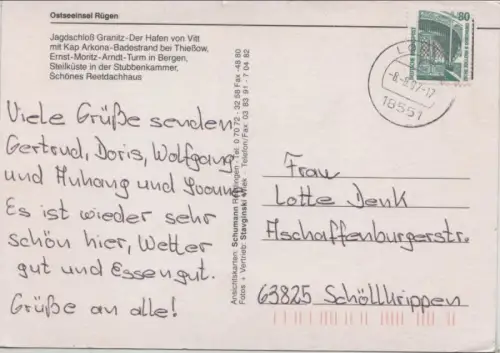 Ostseeinsel Rügen
Jagdschloß Granitz-Der Hafen von Vitt
mit Kap Arkona-Badestrand bei Thießow,
Ernst-Moritz-Arndt-Turm in Bergen,
Steilküste in der Stubbenkammer,
Schönes Reetdachhaus
Viele Grüße senden
Gertrud, Doris, Wolfgang
und Anhang und
Es ist wieder sehr
schön hier, Wetter
gut und Essen gut.
Grüße an alle!
Ansichtskarten: Schumann Tel. 0 70 72 - 32 88 Fax -48 80
Fotos + Vertrieb: Stavginski Telefon/Fax: 03 83 91 - 7 04 82
80
18551
Frau
Lotte Denk
Aschaffenburgerstr.
63825 Schöllkrippen